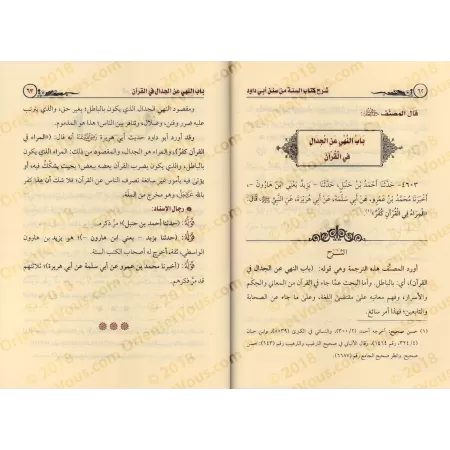 ٦٢
شرح كتاب السنة من سنن أبي داود
قال المصنف
باب النهي عن الجدال
في القرآن
٤٦٠٣- حدثنا أحمد بن حنبل، حدثنا - يزيد يعني ابن هارون -،
أخبرنا محمد بن عمرو، عن أبي سلمة، عن أبي هريرة، عن النبي ﷺ قال:
«المراء في القرآن كفر»(١).
الشرح
أورد المصنف هذه الترجمة وهي قوله: (باب النهي عن الجدال في
القرآن)، أي: بالباطل. وأما البحث عما جاء في القرآن من المعاني والحكم
والأحكام، وفهم معانيه على مقتضى اللغة، وعلى ما جاء عن الصحابة
والتابعين؛ فهذا أمر سائغ.
(١) حسن صحيح: أخرجه أحمد (٣٠٠/٢)، والنسائي في الكبرى (٥٠٣٩)، وابن حبان
(٣٢٤/٤، رقم ١٤٦٤)، وقال الألباني في صحيح الترغيب والترهيب رقم (١٤٣): حسن
صحيح. وانظر صحيح الجامع رقم (٦٦٨٧).
باب النهي عن الجدال في القرآن
٦٣
ومقصود النهي الجدال الذي يكون بالباطل؛ بغير حق، والذي يترتب
عليه ضرر وفتن، وضلال، وتنافر بين الناس؛ هذا هو المذموم.
وقد أورد أبو داود حديث أبي هريرة أن النبي ﷺ قال: «المراء في
القرآن كفر»، والمراء هو الجدال، والمقصود من ذلك: المراء الذي يكون
بالباطل، والذي يكون بضرب القرآن بعضه ببعض؛ بحيث يشكك فيه، أو
يؤتى فيه بأمور غير سائغة تصرف الناس عن القرآن؛ فإن هذا يكون من
الكفر بالله، وهو مخرج من الملة.
رجال الإسناد:
قوله: (حدثنا أحمد بن حنبل)؛ مر ذكره.
قوله: (حدثنا يزيد - يعني ابن هارون -)؛ هو يزيد بن هارون
الواسطي، ثقة، أخرج له أصحاب الكتب الستة.
قوله: (أخبرنا محمد بن عمرو عن أبي سلمة عن أبي هريرة)؛ ثلاثتهم
قد مر ذكرهم.